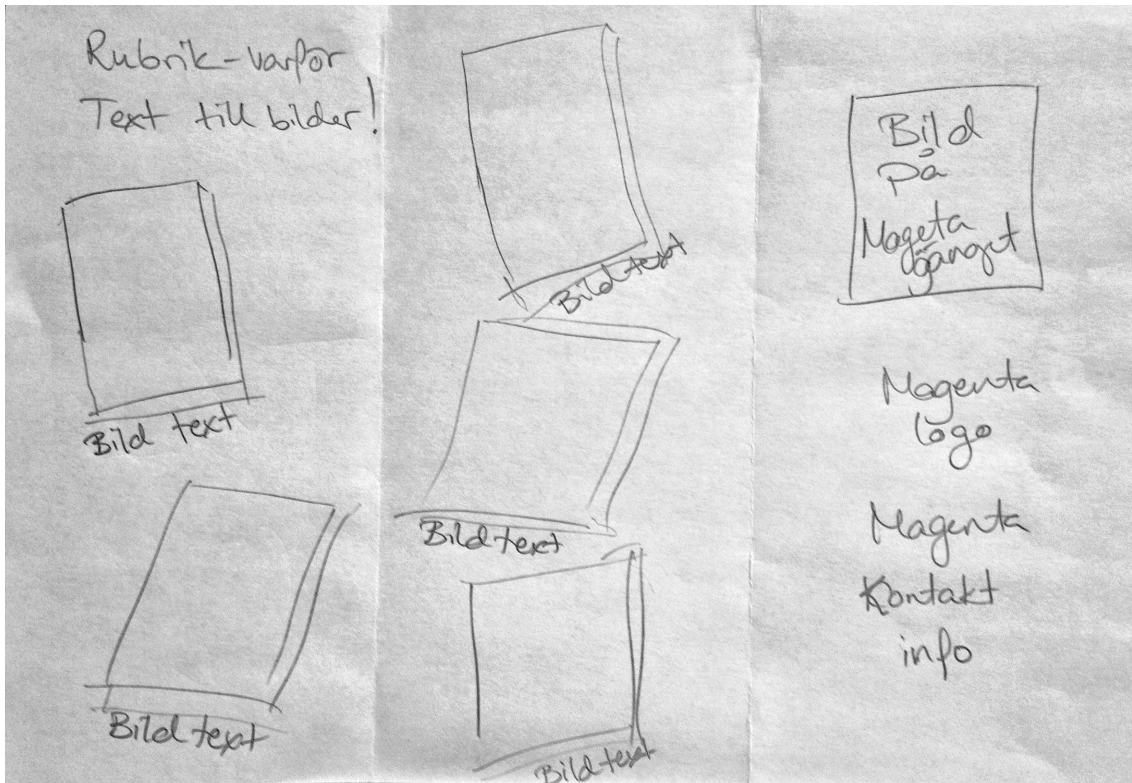 Rubrik-varför
Text till bilder!
Bild text
Bild text
Bild text
Bild text
Bild text
Bild
på
Mageta
gänget
Magenta
logo
Magenta
Kontakt
info